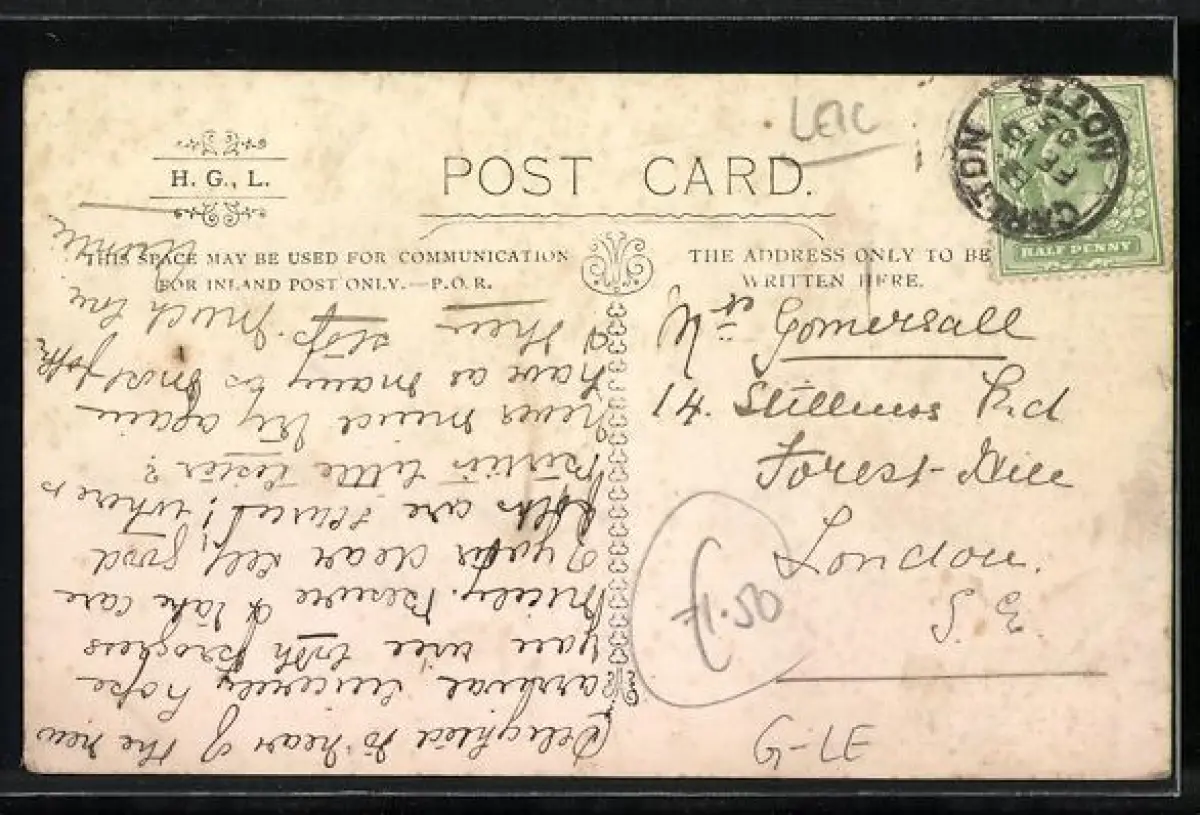 H. G., L.
POST CARD.
LEIC
CARLTON
NOTTS
HALF PENNY
THIS SPACE MAY BE USED FOR COMMUNICATION
FOR INLAND POST ONLY.—P.O.R.
THE ADDRESS ONLY TO BE
WRITTEN HERE.
Gomersall
14. Stillness Rd
Forest Hill
London.
S. E.
£1.50
G-LE
Delighted to hear of the new
arrival, sincerely hope
you will both progress
nicely. Besure & take care
of your dear self, good
folks are scarce! where is
little Lester?
never mind try again
have as many as most folks
& then stop. Much love